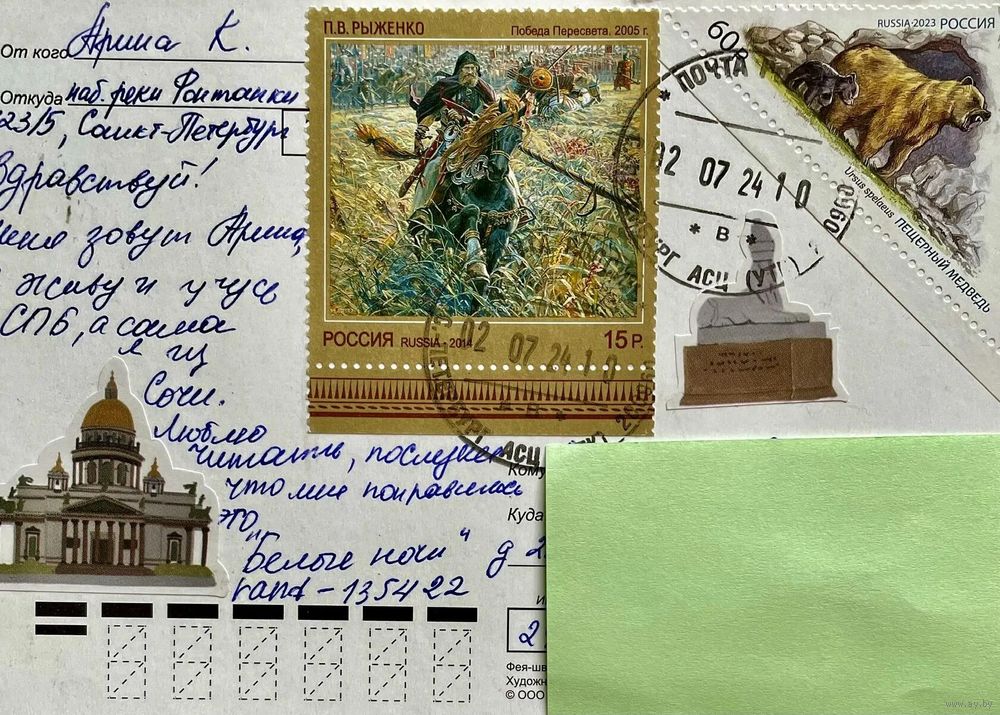 От кого Арина К.
Откуда наб. реки Фонтанки
23/5, Санкт-Петербург
Здравствуй!
меня зовут Арина,
живу и учусь
СПб, а сама
я из
Сочи.
Люблю
читать, последнее
что мне понравилось
это
"Белые ночи"
rand-135422
П.В. РЫЖЕНКО
Победа Пересвета. 2005 г.
РОССИЯ RUSSIA - 2014 15 Р.
RUSSIA-2023 РОССИЯ
60
Ursus spelaeus ПЕЩЕРНЫЙ МЕДВЕДЬ
ПОЧТА
02 07 24 10
* В *
АСЦ
02 07 24 10
АСЦ
Кому
Куда
д 2
2
Фея-шв
Художн
© ООО
www.ay.by